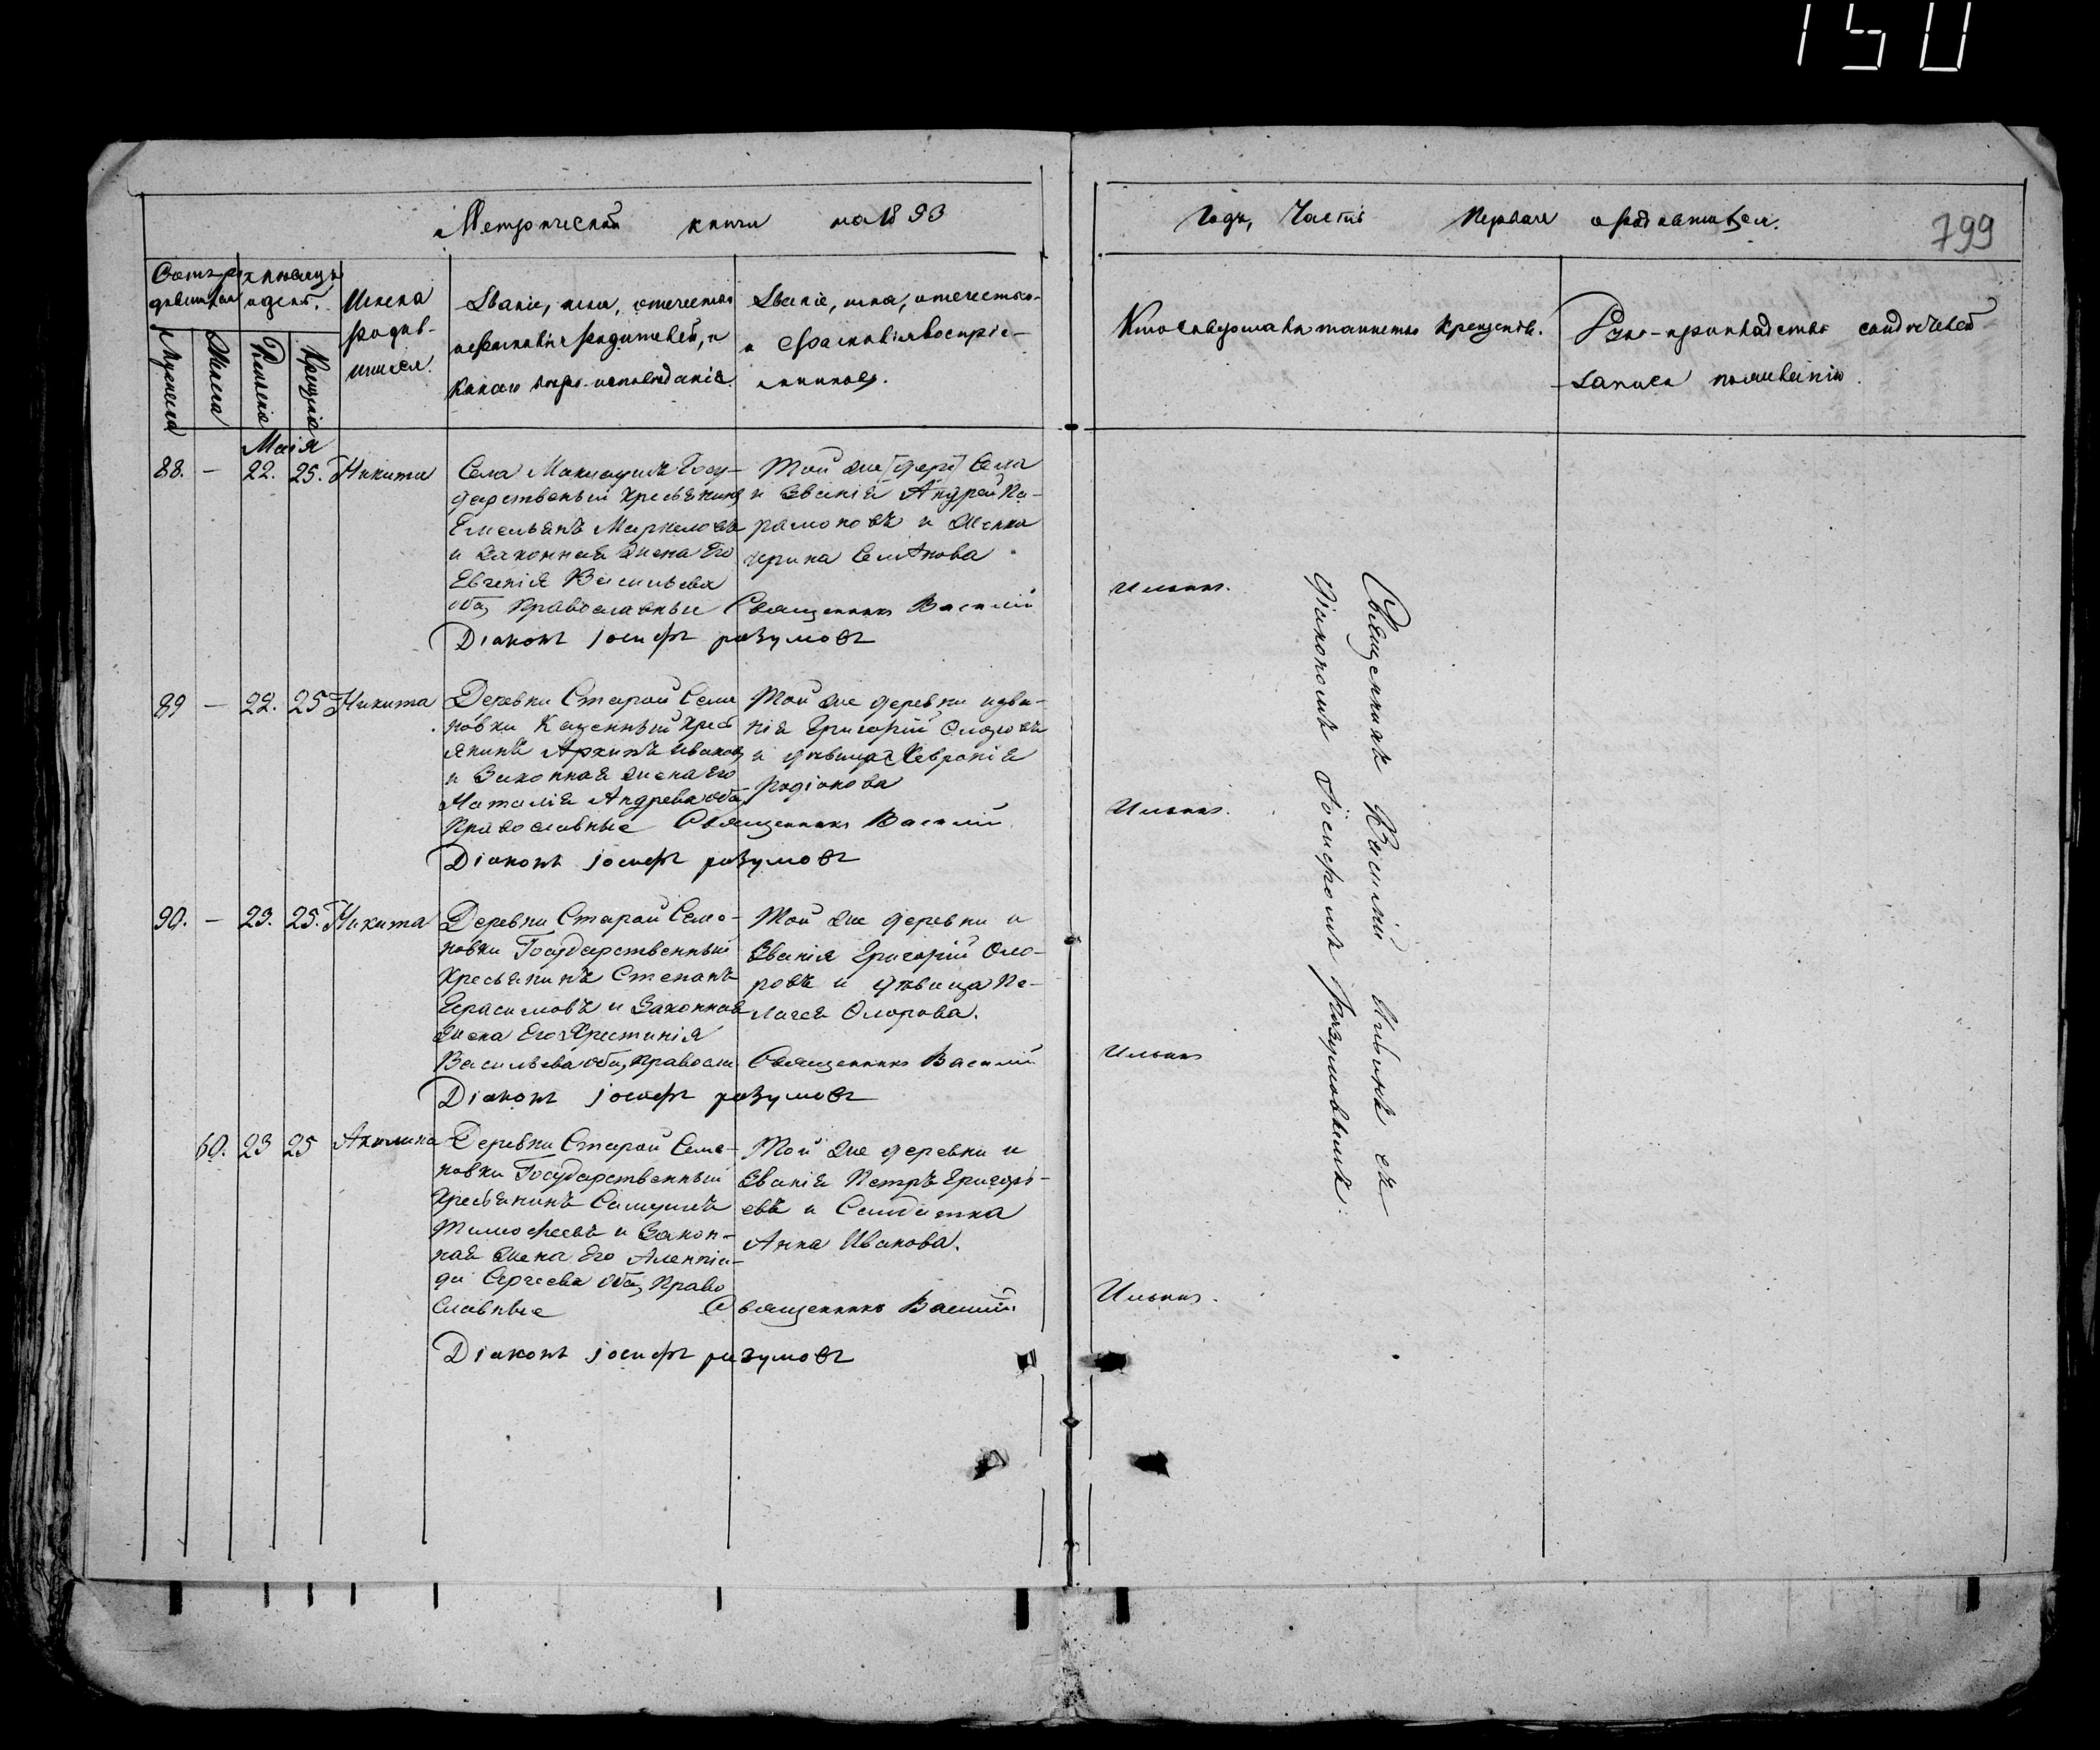 150
Метрической книги на 1893
Годъ, Часть первая о родившихся.
799
Имена
родив-
шихся.
Званіе, имя, отечество
и какого вѣро-исповѣданія.
Званіе, имя, отечество
и
Кто совершалъ таинство крещенія.
Руко-прикладство свидѣтелей
записи по желанію
Мужеска
Женска
Рожденія
Крещенія
Маія
88. — 22. 25. Никита
Села Госу-
дарственный Крестьянинъ
Емельянъ Маркеловъ
и Законная жена Его
Евгенія Васильева
оба Православные
Той же Села
и Званія Андрей Па-
рамоновъ и
Ирина Семенова
Священникъ Василій
Ильинъ.
Діаконъ Іосифъ разумовъ
89 — 22. 25 Никита
Деревни Старой Семе
новки Казенный Крест
янинъ Архипъ Ивановъ
и Законная жена Его
Наталія Андрева оба
Православные
Той же деревни и зва-
нія Григорій
и дѣвица Хевронія
Родіонова
Священникъ Василій
Ильинъ.
Діаконъ Іосифъ разумовъ
90. — 23. 25. Никита
Деревни Старой Семе-
новки Государственный
Крестьянинъ Степанъ
Герасимовъ и Законная
жена Его Христинія
Васильева оба, Правосл.
Той же деревни и
Званія Григорій Ѳло-
ровъ и дѣвица Пе-
лагея Ѳлорова.
Священникъ Василій
Ильинъ
Діаконъ Іосифъ разумовъ
60. 23 25 Акилина
Деревни Старой Семе-
новки Государственный
Крестьянинъ Самуилъ
Тимофеевъ и Закон-
ная жена Его
Сергеева оба, Право
славные
Той же деревни и
Званія Петръ Григорь-
евъ и Солдатка
Анна Иванова.
Священникъ Василій
Ильинъ.
Діаконъ Іосифъ разумовъ
Священникъ Василій Ильинъ съ
Діакономъ Іосифомъ Разумовымъ.